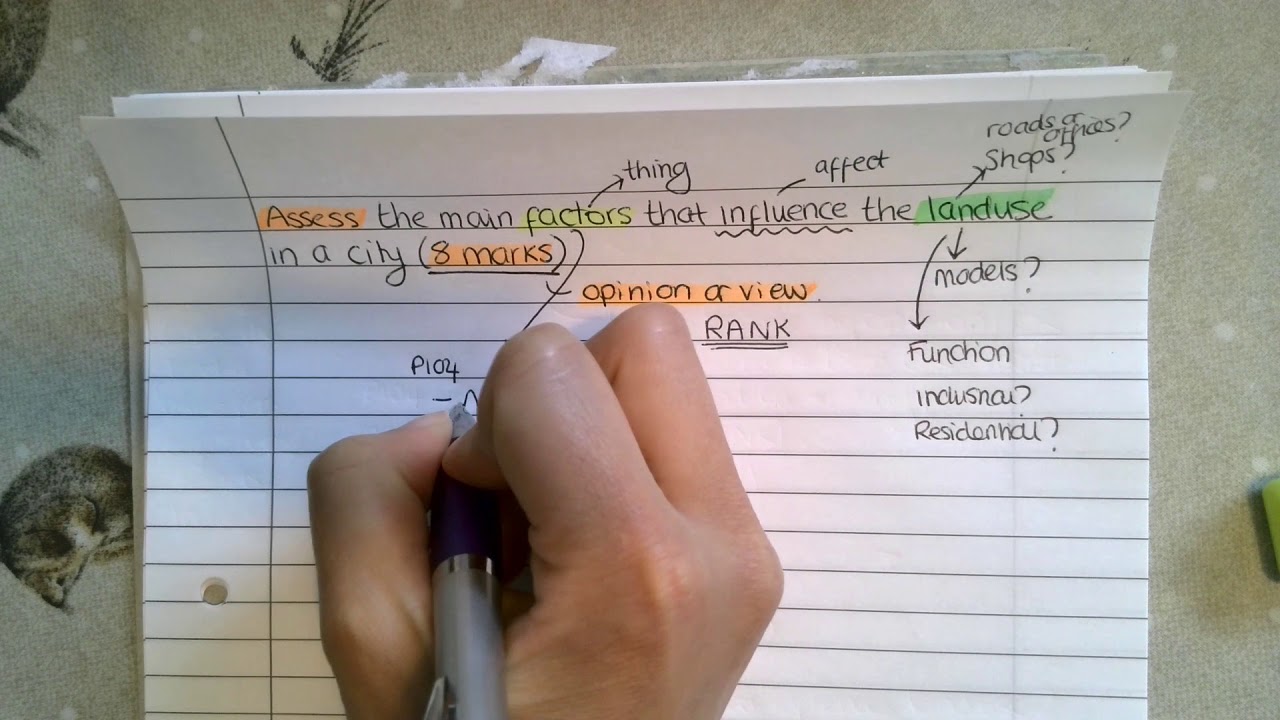 roads or
offices?
Shops?
thing
affect
Assess the main factors that influence the landuse
in a city (8 marks)
models?
opinion or view
RANK
Function
Residential?
P104
-